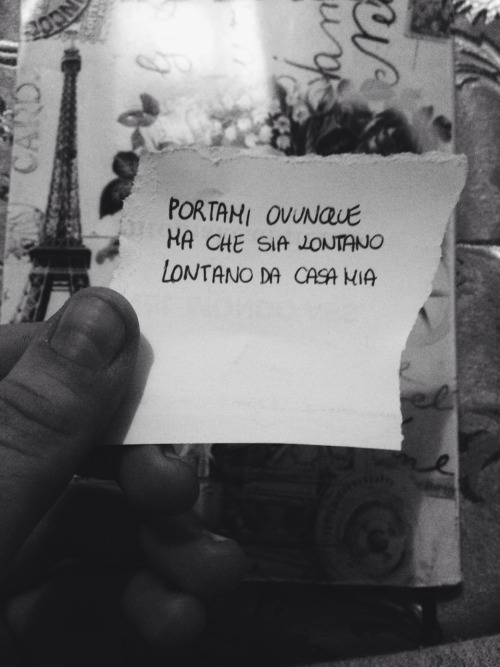 CARD
PORTAMI OVUNQUE
MA CHE SIA LONTANO
LONTANO DA CASA MIA